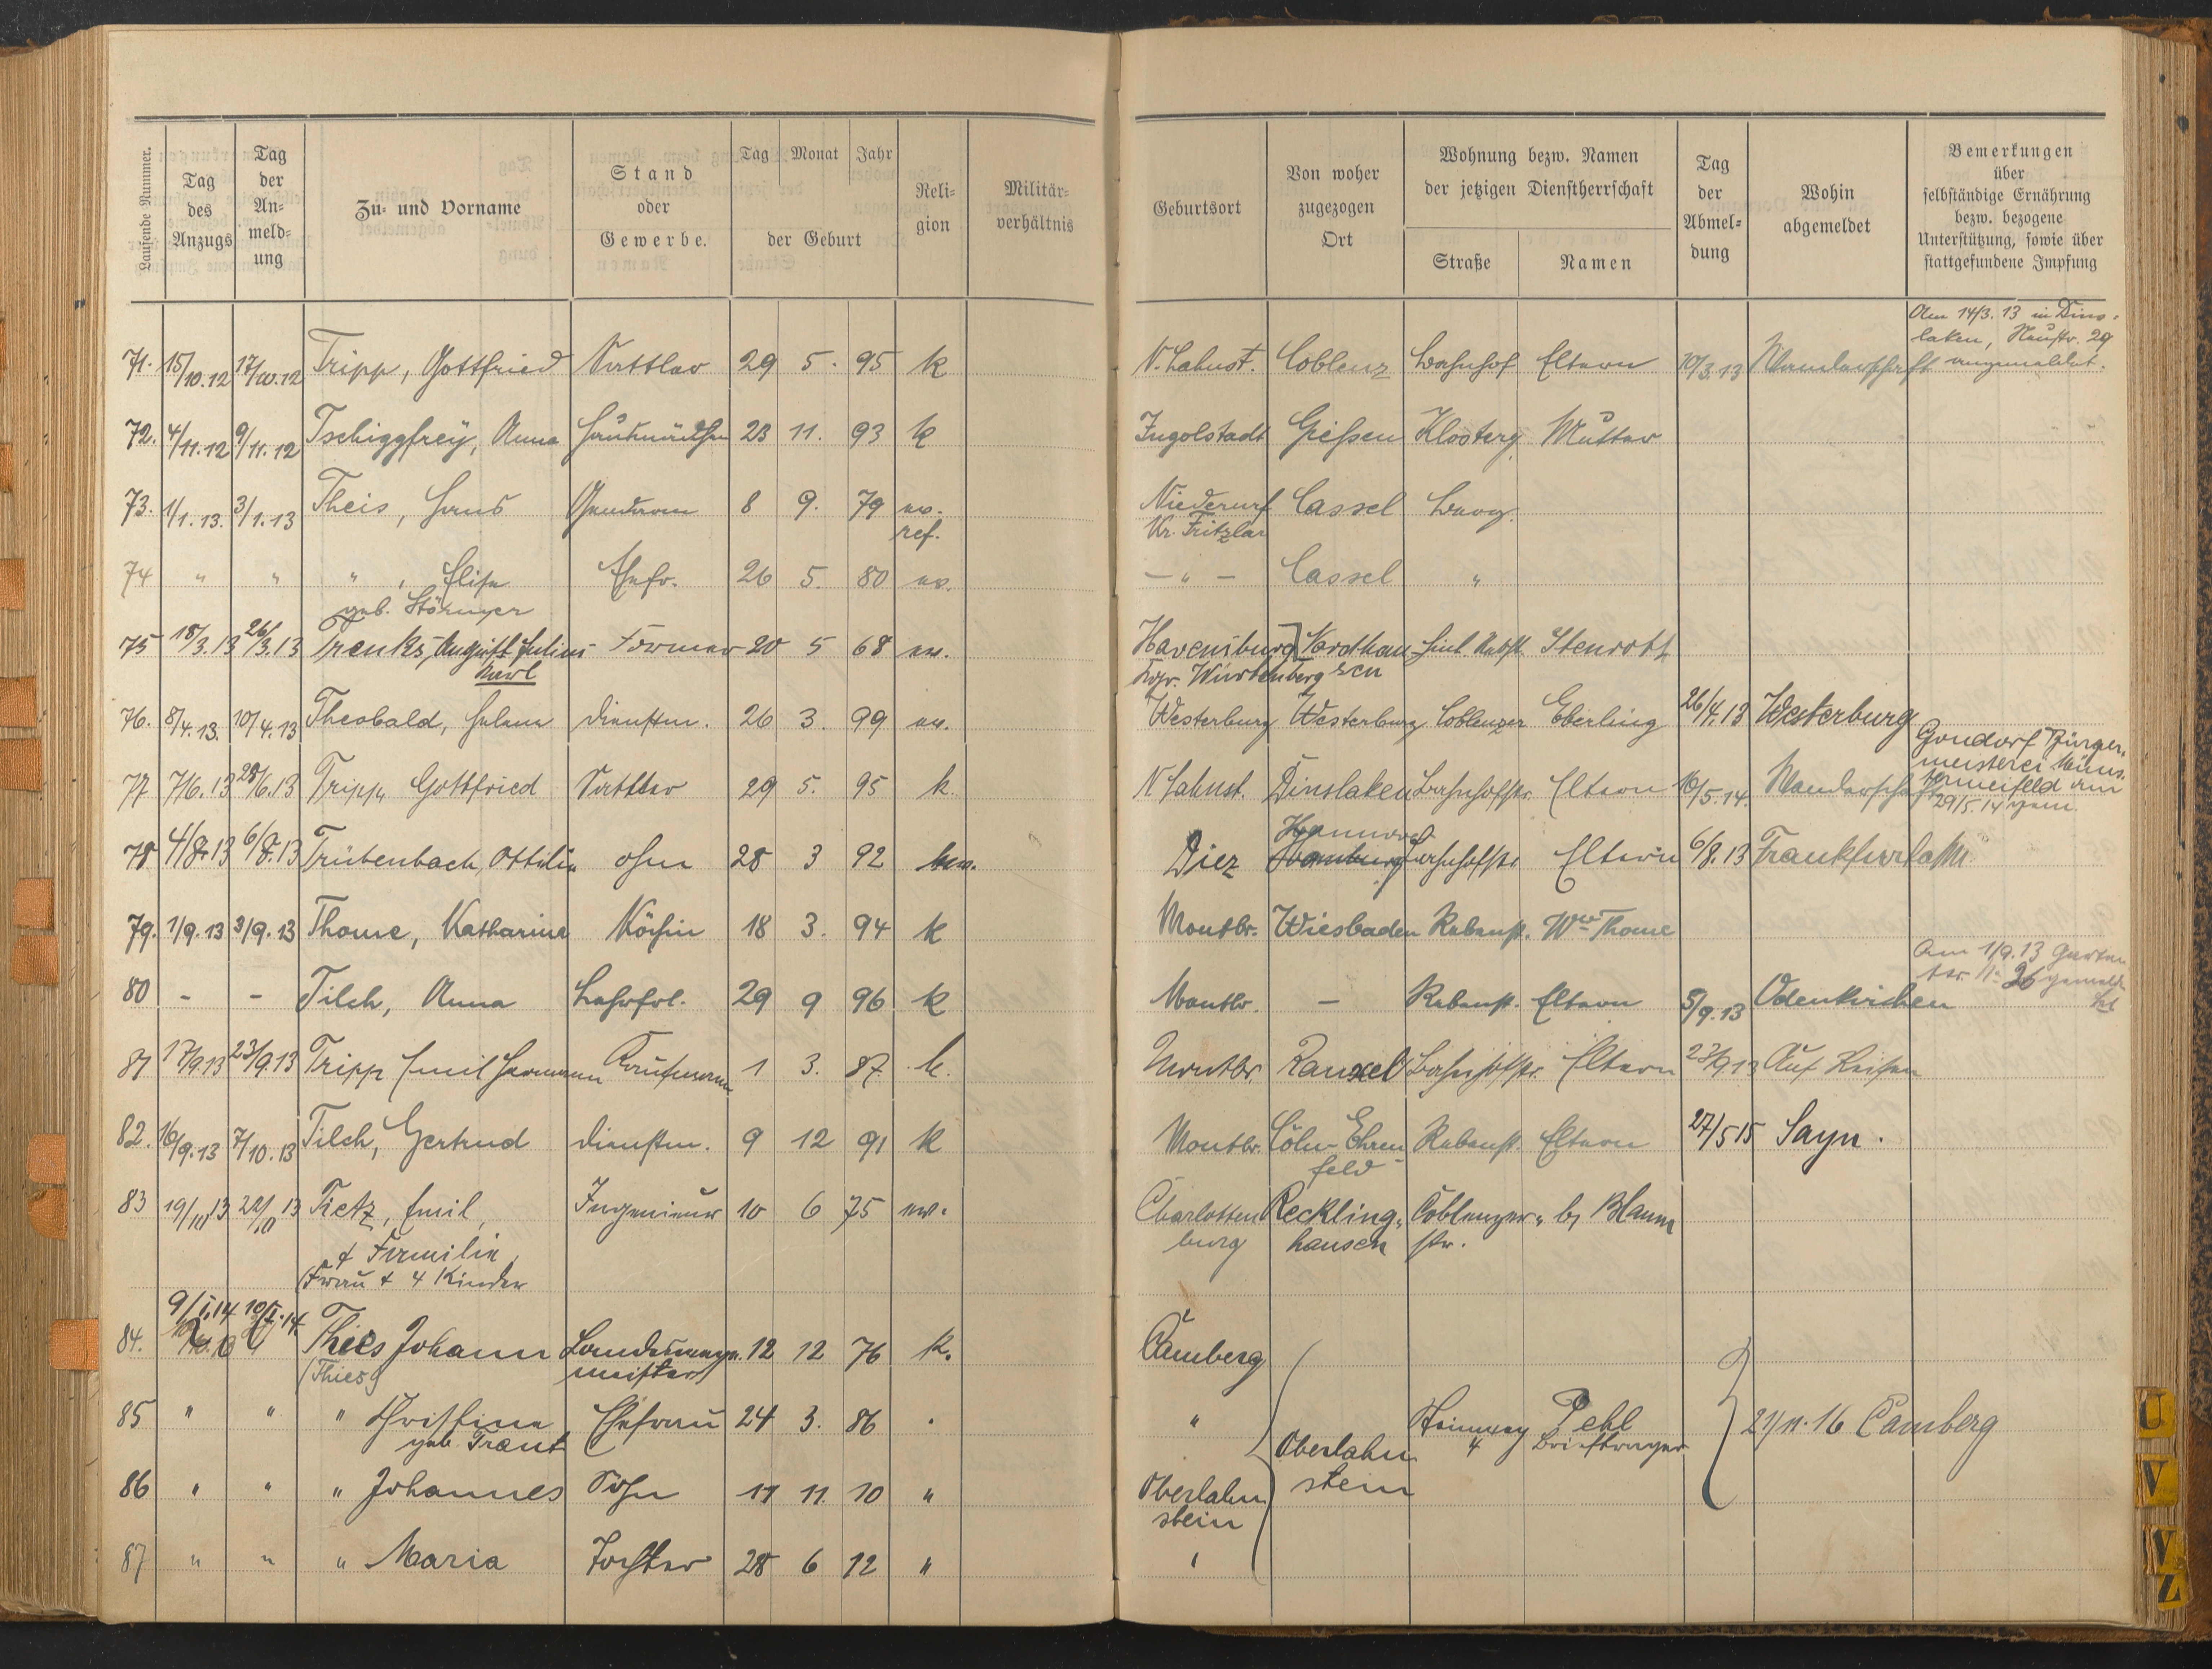 Laufende Nummer.
Tag des Anzugs
Tag der An-meld-ung
Zu- und Vorname
Stand oder Gewerbe.
Tag Monat Jahr der Geburt
Reli-gion
Militär-verhältnis
Geburtsort
Von woher zugezogen Ort
Wohnung bezw. Namen der jetzigen Dienstherrschaft
Straße
Namen
Tag der Abmel-dung
Wohin abgemeldet
Bemerkungen über selbständige Ernährung bezw. bezogene Unterstützung, sowie über stattgefundene Impfung
Am 14/3. 13 in Dins-
laken, Neustr. 29
71. 15/10.12 17/10.12 Tripp, Gottfried Sattler 29 5. 95 k N. Lahnst. Coblenz Bahnhof Eltern 10/3.13 Wanderschaft angemeldet.
72. 4/11.12 9/11.12 Tschiggfreÿ, Anna 23 11. 93 k Ingolstadt Gießen Klosterg. Mutter
73. 1/1.13. 3/1.13 Theis, Hans Gendarm 8 9. 79 ev. Niederurf Cassel
ref. Kr. Fritzlar
74 " " " , Elise Ehefr. 26 5. 80 ev. - " - Cassel "
geb. Störmer
75 18/3.13 26/3.13 Trenks, August Julius Former 20 5 68 ev. Nordhau
Karl Kgr. Würtemberg sen
76. 8/4.13. 10/4.13 Theobald, Helene Dienstm. 26 3. 99 ev. Westerburg Westerburg Coblenzer Eberling 26/4.13 Westerburg
Gondorf Bürger-
meisterei Müns-
termeifeld am
29/5.14 gem.
77 7/6.13 28/6.13 Tripp Gottfried Sattler 29 5. 95 k. N Lahnst. Dinslaken Bahnhofstr. Eltern 16/5.14. Wanderschaft
Hannover
78 4/8.13 6/8.13 Trübenbach, Ottilie ohne 28 3 92 ev. Diez Homburg Bahnhofstr. Eltern 6/8.13 Frankfurt a/M.
79. 1/9.13 3/9.13 Thome, Katharine Köchin 18 3. 94 k Montbr. Wiesbaden Rebenst. Wwe Thome
Am 1/9.13 Garten
str. No 26 gemel-
det
80 - - Tilch, Anna Lehrfrl. 29 9 96 k Montbr. - Rebenst. Eltern 5/9.13 Odenkirchen
81 17/9.13 23/9.13 Tripp Emil Hermann Kaufmann 1 3. 87. k. Montbr Rauxel Bahnhofstr. Eltern 23/9.13 Auf Reisen
82. 16/9.13 7/10.13 Tilch, Gertrud Dienstm. 9 12 91 k Montbr. Cöln-Ehren- Rebenst. Eltern 27/5 15 Sayn.
feld
83 19/10 13 22/10 13 Tietz, Emil, Ingenieur 10 6 75 ev. Charlotten Reckling- Coblenzer- b/ Blaum
burg hausen str.
& Familie,
(Frau & 4 Kinder
9/I.14 10/I.14.
84. Thies Johann 12 12 76 k. Camberg
(Thies) meister
85 " " " Christine Ehefrau 24 3. 86 " Oberlahn Pehl 21/11.16 Camberg
geb. Traut 4 Briefträger
86 " " " Johannes Sohn 11 11. 10 " Oberlahn stein
stein
87 " " " Maria Tochter 28 6 12 " "
U
V
V
Z